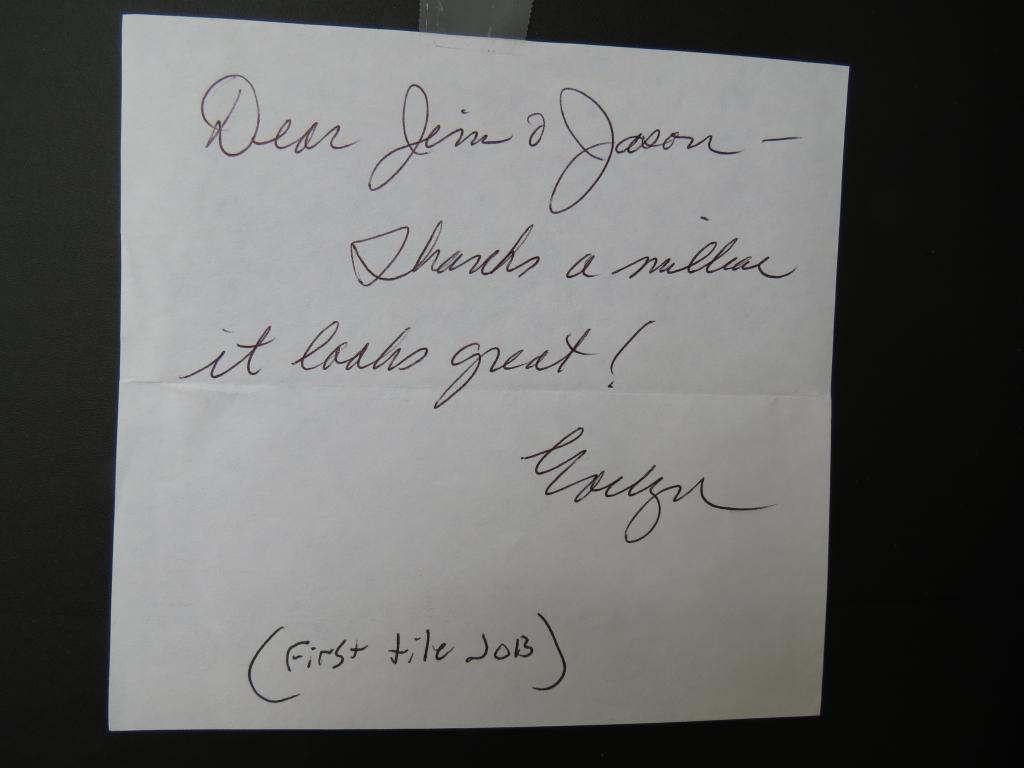 Dear Jim & Jason —
Thanks a million
it looks great!
Evelyn
(First tile JOB)